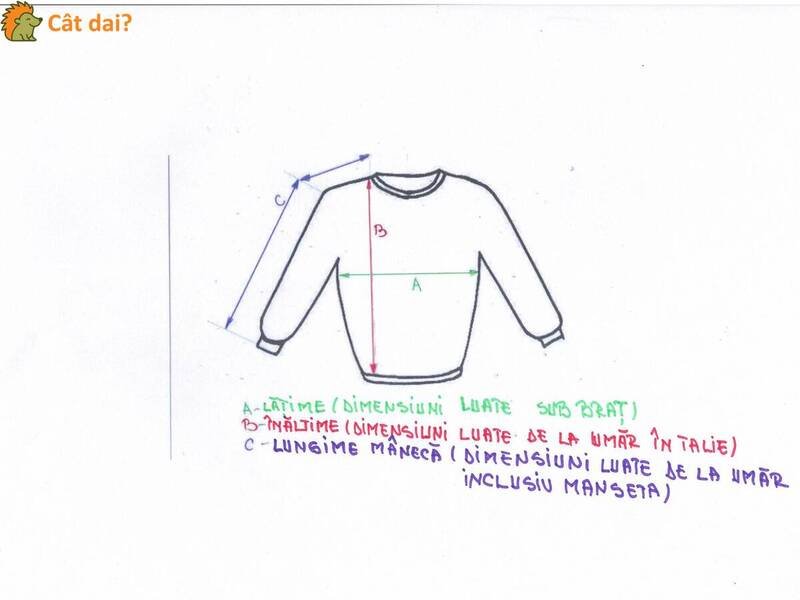 Cât dai?
C
B
A
A-LĂȚIME (DIMENSIUNI LUATE SUB BRAȚ)
B-ÎNĂLTIME (DIMENSIUNI LUATE DE LA UMĂR ÎN TALIE)
C-LUNGIME MÂNECĂ (DIMENSIUNI LUATE DE LA UMĂR
INCLUSIV MANSETA)